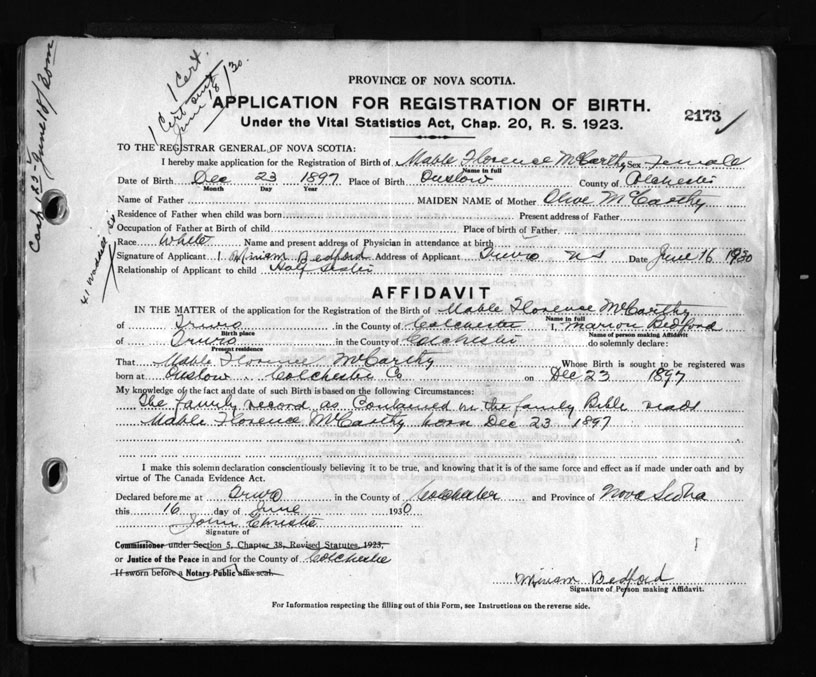 1 Cert.
1 Cert sent
June 18/30.
Cash June 18/30
PROVINCE OF NOVA SCOTIA.
APPLICATION FOR REGISTRATION OF BIRTH.
2173
Under the Vital Statistics Act, Chap. 20, R. S. 1923.
TO THE REGISTRAR GENERAL OF NOVA SCOTIA:
I hereby make application for the Registration of Birth of Mable Florence McCarthy Sex Female
Name in full
Date of Birth Dec 23 1897 Place of Birth Onslow County of Colchester
Month Day Year
Name of Father MAIDEN NAME of Mother Olive McCarthy
Residence of Father when child was born Present address of Father
Occupation of Father at Birth of child Place of birth of Father
Race White Name and present address of Physician in attendance at birth
Signature of Applicant Miriam Bedford Address of Applicant Truro N S Date June 16 1930
Relationship of Applicant to child Half Sister
41 Waddell St
AFFIDAVIT
IN THE MATTER of the application for the Registration of the Birth of Mable Florence McCarthy
Name in full
of Truro in the County of Colchester I, Marion Bedford
Birth place Name of person making Affidavit
of Truro in the County of Colchester do solemnly declare:
Present residence
That Mable Florence McCarthy Whose Birth is sought to be registered was
born at Onslow Colchester Co on Dec 23 1897
My knowledge of the fact and date of such Birth is based on the following Circumstances:
The family record as Contained in the family Bible reads
Mable Florence McCarthy born Dec 23 1897
I make this solemn declaration conscientiously believing it to be true, and knowing that it is of the same force and effect as if made under oath and by
virtue of The Canada Evidence Act.
Declared before me at Truro in the County of Colchester and Province of Nova Scotia
this 16 day of June 1930
John Christie
Signature of
Commissioner under Section 5, Chapter 38, Revised Statutes, 1923,
or Justice of the Peace in and for the County of Colchester
If sworn before a Notary Public affix seal.
Miriam Bedford
Signature of Person making Affidavit.
For Information respecting the filling out of this Form, see Instructions on the reverse side.